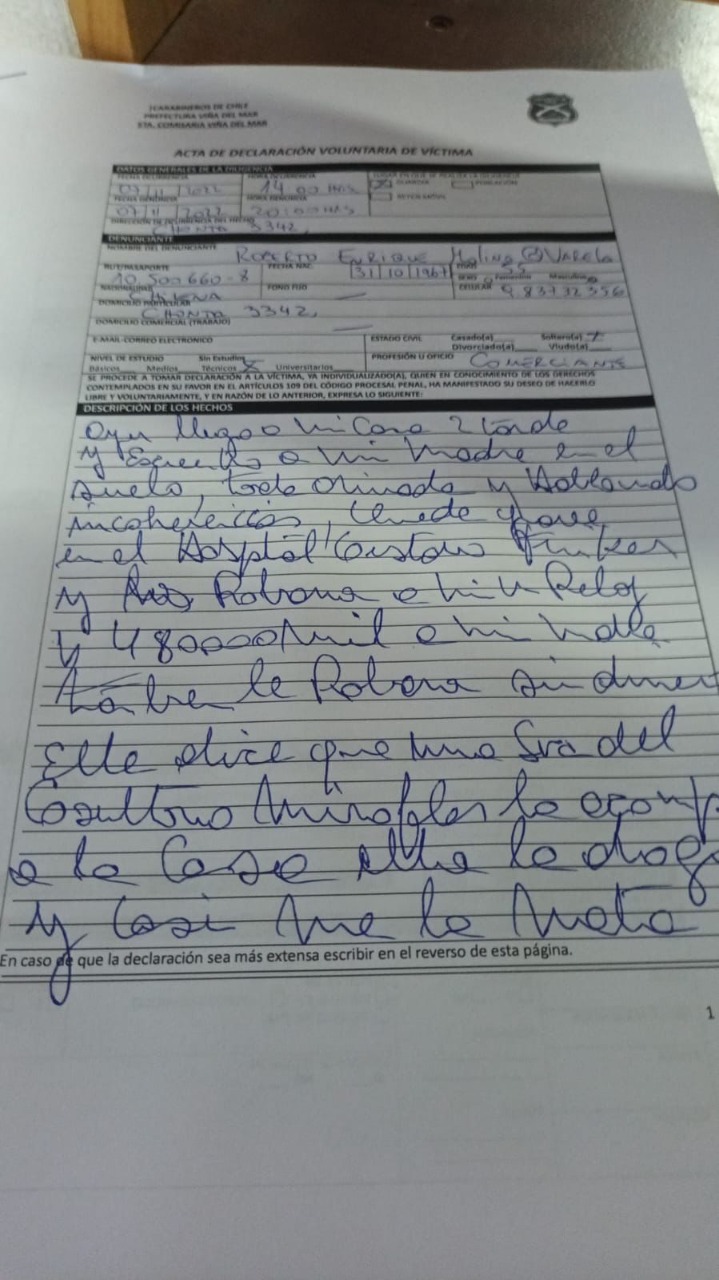 CARABINEROS DE CHILE
PREFECTURA VIÑA DEL MAR
5TA. COMISARIA VIÑA DEL MAR
ACTA DE DECLARACIÓN VOLUNTARIA DE VÍCTIMA
DATOS GENERALES DE LA DILIGENCIA
FECHA OCURRENCIA HORA OCURRENCIA LUGAR EN QUE SE REALIZA LA DILIGENCIA
07/11/2022 14:00 HRS X CUARTEL POBLACIÓN
FECHA DENUNCIA HORA DENUNCIA RETEN MÓVIL
07/11/2022 20:00 HRS
DIRECCIÓN DE OCURRENCIA DEL HECHO
CHONTA 3342,
DENUNCIANTE
NOMBRE DEL DENUNCIANTE ROBERTO ENRIQUE Molina VARELA
RUT/PASAPORTE FECHA NAC. SEXO Femenino Masculino
10.500660-8 31/10/1967
NACIONALIDAD FONO FIJO CELULAR 983732356
CHILENA
DOMICILIO PARTICULAR
CHONTA 3342,
DOMICILIO COMERCIAL (TRABAJO)
E-MAIL-CORREO ELECTRÓNICO ESTADO CIVIL Casado(a) Soltero(a) X
Divorciado(a) Viudo(a)
NIVEL DE ESTUDIO Sin Estudios PROFESIÓN U OFICIO COMERCIANTE
Básicos Medios Técnicos X Universitarios
SE PROCEDE A TOMAR DECLARACIÓN A LA VÍCTIMA, YA INDIVIDUALIZADO(A), QUIEN EN CONOCIMIENTO DE LOS DERECHOS
CONTEMPLADOS EN SU FAVOR EN EL ARTÍCULOS 109 DEL CÓDIGO PROCESAL PENAL, HA MANIFESTADO SU DESEO DE HACERLO
LIBRE Y VOLUNTARIAMENTE, Y EN RAZÓN DE LO ANTERIOR, EXPRESA LO SIGUIENTE:
DESCRIPCIÓN DE LOS HECHOS
llego a mi Casa 2 tarde
y a mi Madre en el
suelo, toda orinada y Hablando
incoherencias, grave
en el Hospital Gustavo
y Robaron a mi un Reloj
y 480000 Mil a mi Madre
le Robaron su diner
Ella dice que una Sra del
Miraflores la acomp
a la Casa ella la drog
y Casi me la Mata
En caso de que la declaración sea más extensa escribir en el reverso de esta página.
1